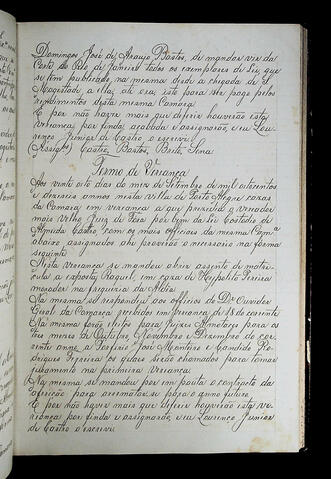 Domingos José de Araujo Bastos, de mandar vir da
Corte do Rio de Janeiro todos os exemplares de Leis que
se tem publicado, na mesma desde a chegada de S.
Magestade a ella, até óra, isto para ser pago pelos
rendimentos desta mesma Camara.
E por não haver mais que deferir houverão esta
veriança por finda, acabada e assignarão, eu Lou-
renço Junior de Castro o escrevi.
(Assigdos) Castro, Bastos, Brito, Lima
Termo de Veriança
Aos vinte oito dias do mez de Setembro de mil oitocentos
e dezeseis annos nesta villa de Porto Alegre e cazas
da Camara, em veriança a que prezidio o vereador
mais velho Juiz de Fóra por bem da Lei Custodio de
Almeida Castro com os mais officiaes da mesma Camª
abaixo assignados ahi proverão o necessario na forma
seguinte
Nesta veriança se mandou abrir assento de matri-
cula a exposta Raquel, em caza de Hypolito Pereira
morador na freguezia da Aldêa
Na mesma se respondeu aos officios do Dr Ouvidor
Geral da Comarca recebidos em veriança de 18 do corrente
Na mesma forão eleitos para Juizes Almotaçes para os
tres mezes de Outubro, Novembro e Dezembro do cor-
rente anno, a Zeferino José Monteiro e Candido Ro-
drigues Ferreira os quaes serão chamados para tomar
juramento na primeira veriança.
Na mesma se mandou por em pauta o contracto da
afferição para arrematar-se para o anno futuro.
E por não haver mais que deferir houverão esta ve-
riança por finda e assignarão, eu Lourenço Junior
de Castro o escrevi